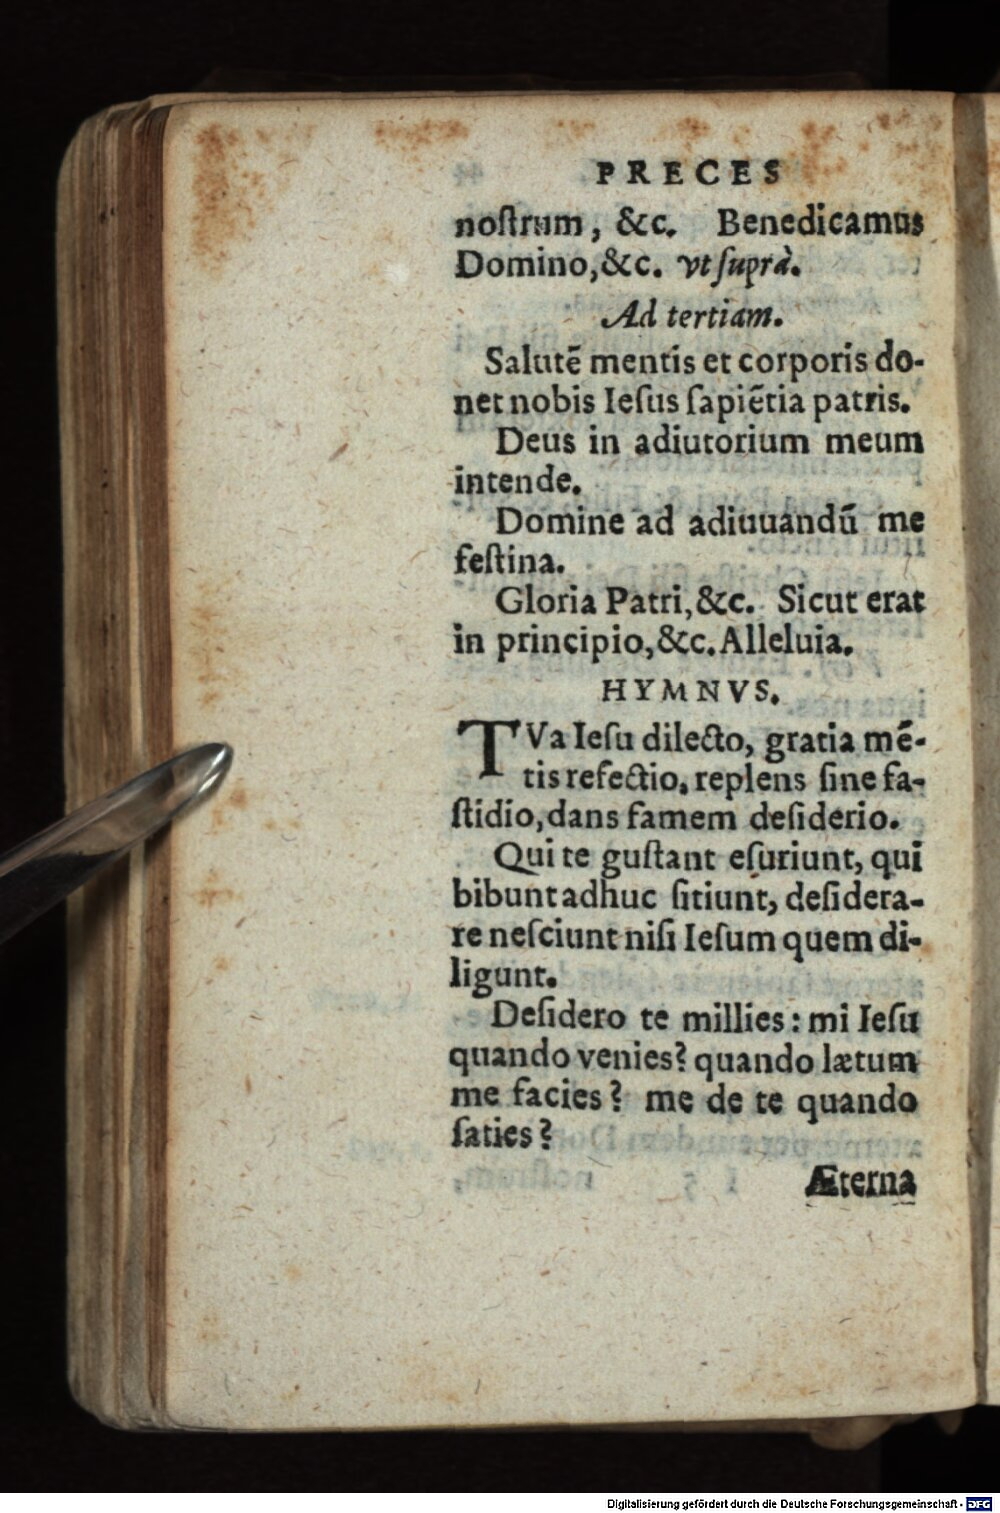 PRECES
noſtrum, &c. Benedicamus
Domino,&c. vt ſuprà.
Ad tertiam.
Salutē mentis et corporis do-
net nobis Ieſus ſapiētia patris.
Deus in adiutorium meum
intende.
Domine ad adiuuandū me
feſtina.
Gloria Patri,&c. Sicut erat
in principio,&c. Alleluia.
HYMNVS.
TVa Ieſu dilecto, gratia mē-
tis refectio, replens ſine fa-
ſtidio, dans famem deſiderio.
Qui te guſtant eſuriunt, qui
bibunt adhuc ſitiunt, deſidera-
re neſciunt niſi Ieſum quem di-
ligunt.
Deſidero te millies: mi Ieſu
quando venies? quando lætum
me facies? me de te quando
ſaties?
Æterna
Digitalisierung gefördert durch die Deutsche Forschungsgemeinschaft - DFG